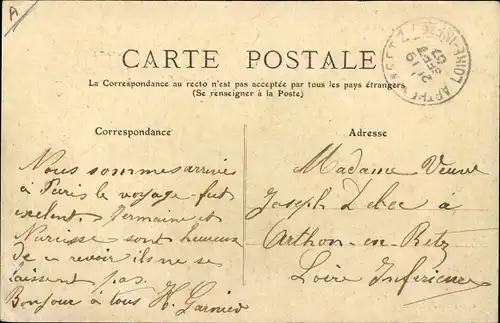 A
CARTE POSTALE
La Correspondance au recto n'est pas acceptée par tous les pays étrangers
(Se renseigner à la Poste)
Correspondance
Nous sommes arrivé
à Paris le voyage fut
exelent. Germaine et
Narcisse sont heureux
De se revoir ils ne se
laissent pas.
Bonjour à tous H. Garnier
Adresse
Madame Veuve
Joseph à
Arthon-en-Retz
Loire Inférieure